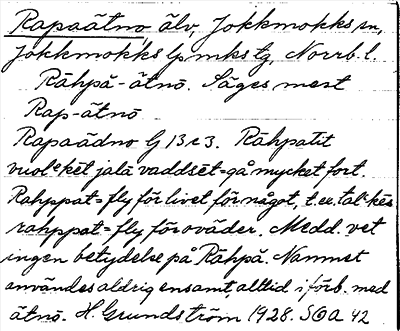 Rapaätno älv, Jokkmokks sn,
Jokkmokks lpmks tg, Norrb. l.
Rāhpā-ätnō. Säges mest
Rap-ätnō
Rapaädno G 13 c 3. Rāhpatit
vuolᵉkēt jalā vaddsēt = gå mycket fort.
Rahppat = fly för livet för något, t. ex. talᵃkēs
rahppat = fly för oväder. Medd. vet
ingen betydelse på Rāhpā. Namnet
användes aldrig ensamt, alltid i förb. med
ätnō. H. Grundström 1928. SOA 42